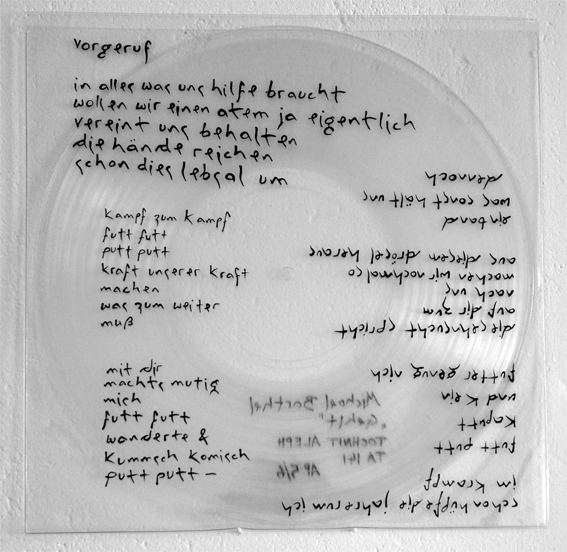 vorgeruf
in alles was uns hilfe braucht
wollen wir einen atem ja eigentlich
vereint uns behalten
die hände reichen
schon dies lebsal um
kampf zum kampf
futt futt
putt putt
kraft unserer kraft
machen
was zum weiter
muß
mit dir
machts mutig
mich
futt futt
wanderte &
kummsch komisch
putt putt –
schon hüpfte die jahre um ich
im krampf
futt putt
kaputt
und kein
futter genug nich
die sehnsucht spricht
auf dir zum
nach uns
machen wir nochmal so
aus diesem drösel heraus
ein band
was sonst hält uns
dennoch
Michael Barthel
TOCHNIT ALEPH
TA 141
AP 5/6